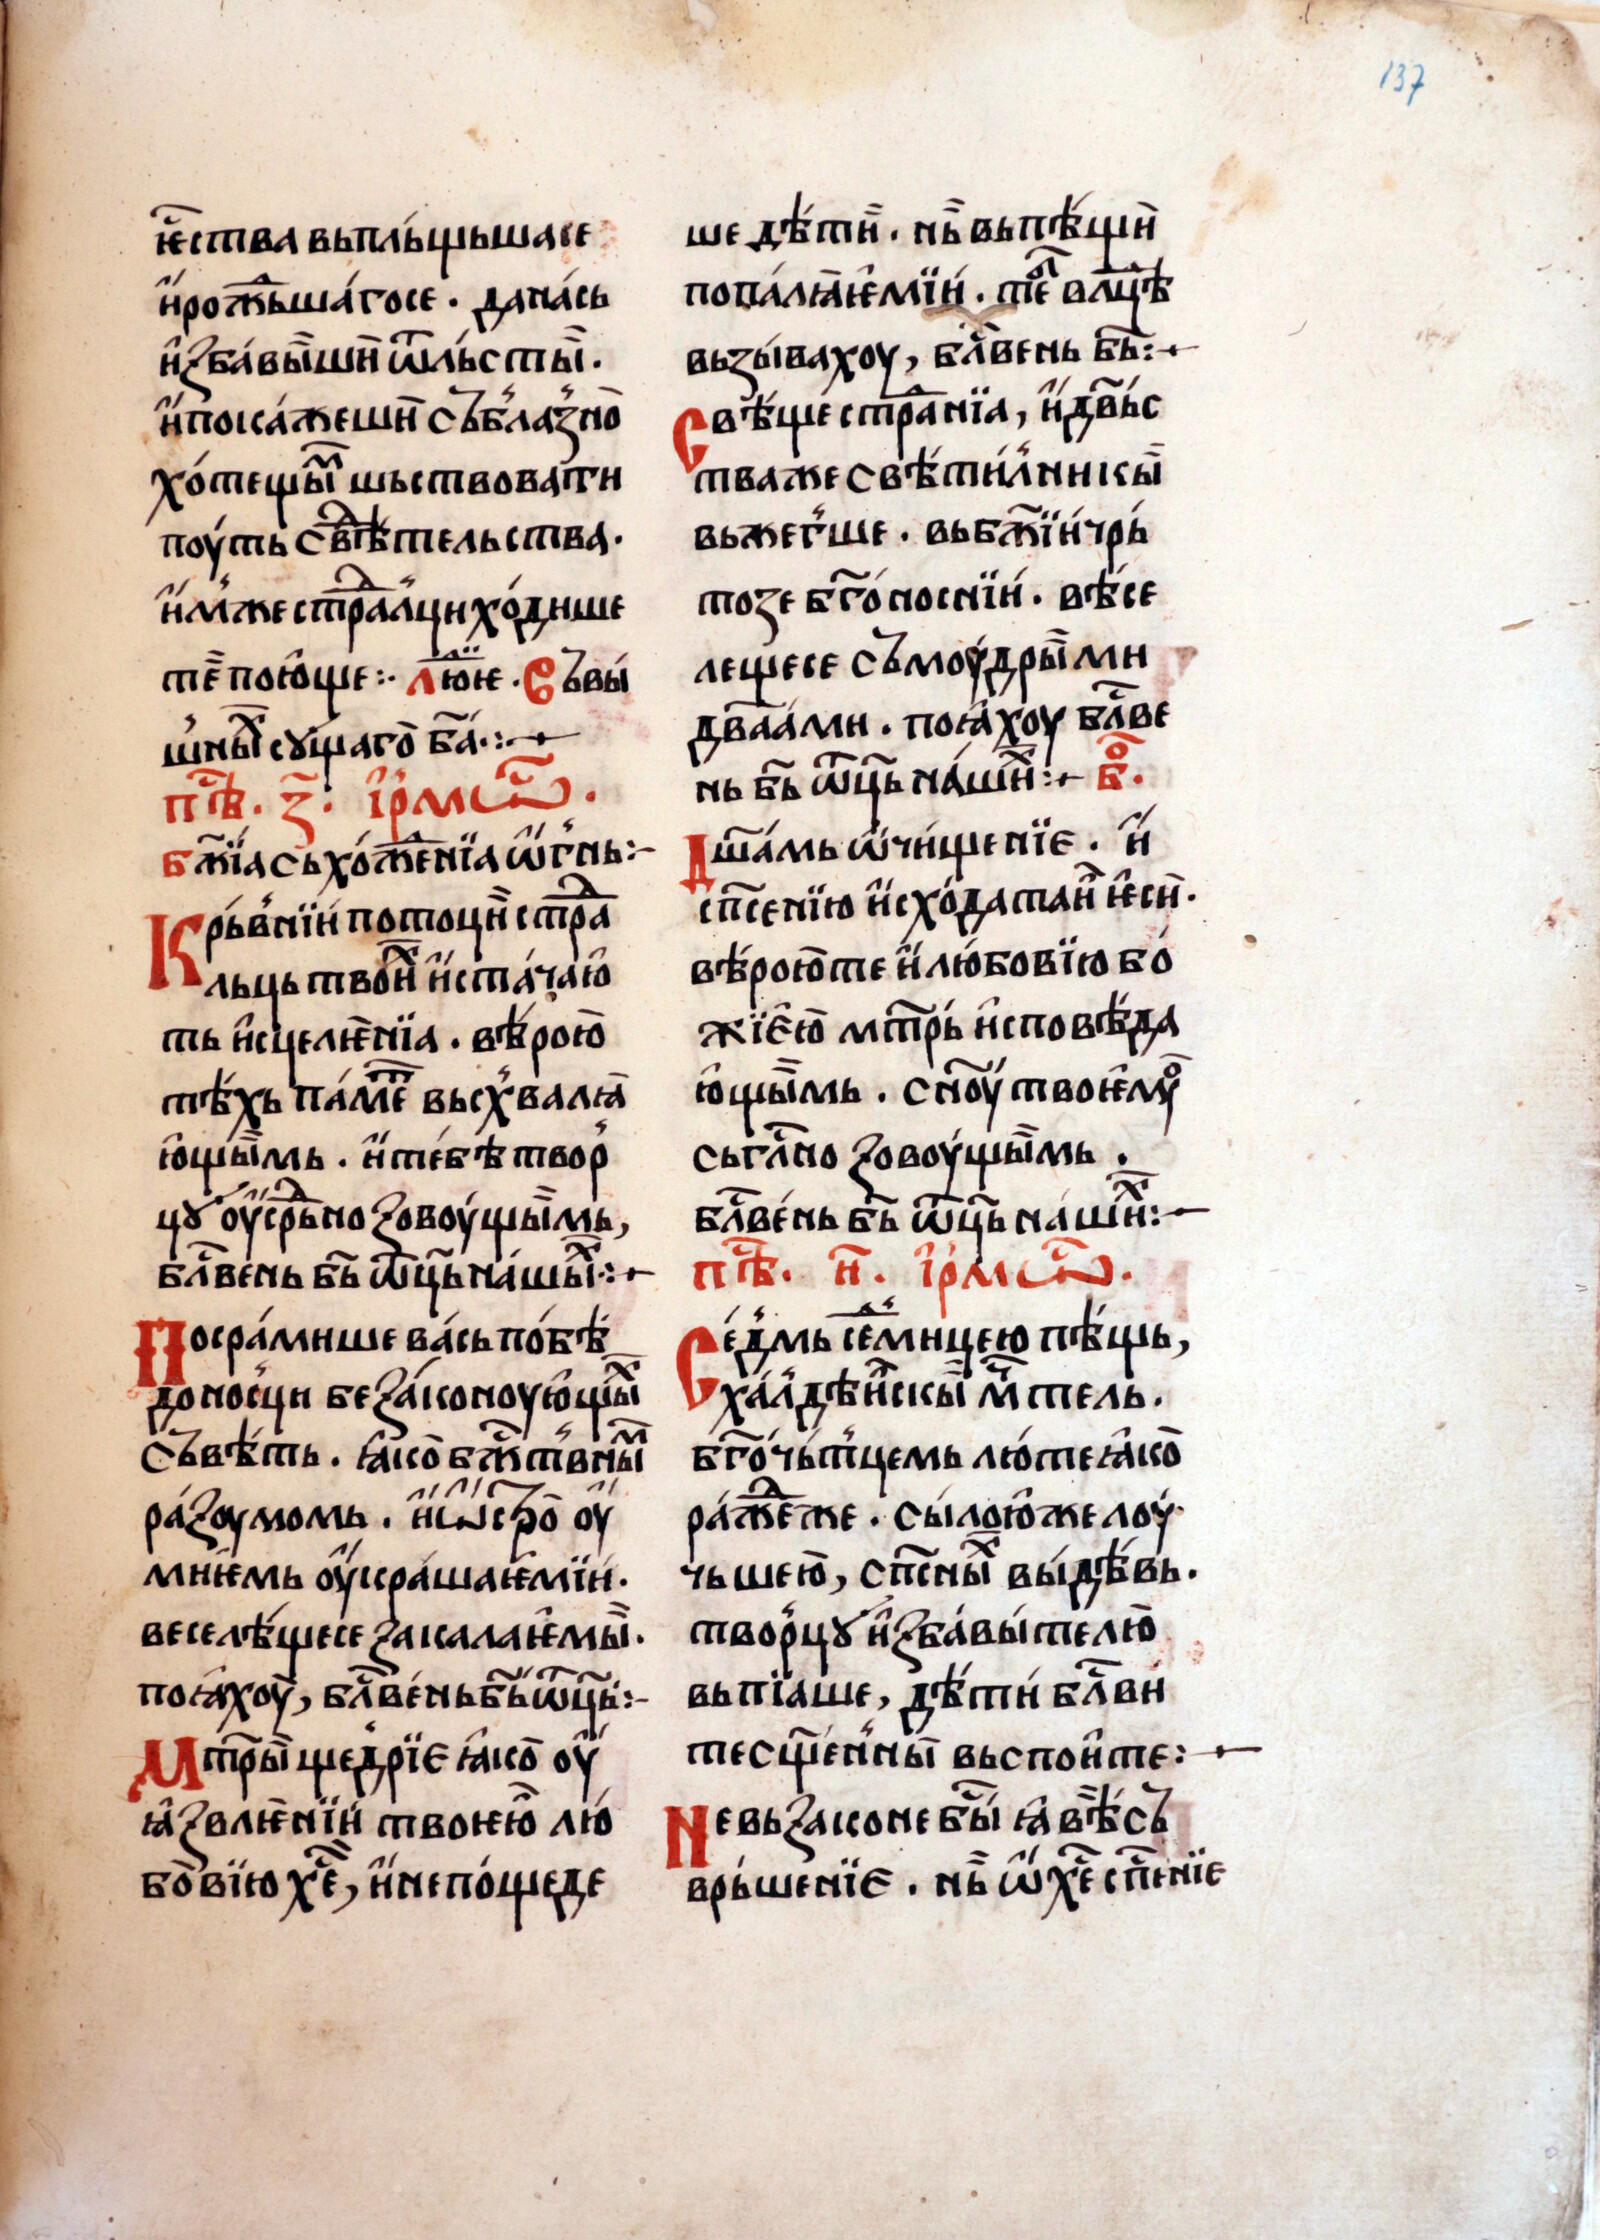 137
ѥ҃ства вьпль́щьшасе
и҆рож҃ьша́госе · дана́сь
и҆зба́вы̏ши̏ ѿль́сты̏ ·
и҆покажеши̏ съблазно̀
хо́тещыⷨ шьствовати
поу́ть свⷣѣтельства ·
и҆мже стрⷣалци хо́дише
те̏ пою҆ще:· лю҃ѥ · Съвы́
шныⷯ сꙋщаго̀ ба҃ ·:·
пѣ҃ · з҃ · і҆рмѡ҃ ·
бж҃їа съхожⷣенїа ѡ҆гнь:·
Крь́внїи потоци̏ стрⷣа
льць твоиⷯ и҆ста́чаю҆
ть и҆сцелѥнїа · вѣ́рою̀
тѣ́хь па́меⷮ въсхвалꙗ
ю҆щы̏мь · и҆те́бѣ твор
цꙋ оу҆срⷣьно зовоу́щы̏мь,
бл҃вень бь҃ ѿць҃ на́шыⷯ:·
Посра́мише ва́сь по́бѣ
доносци беза́коноую҆щыⷯ
съвѣ́ть · ꙗ҆ко̀ бжⷭ҇твныⷨ
ра́зоумомь · и҆ѡ҆стро̀ оу҆
мнѥмь оу҆кра́шаѥмїи ·
веселѣ́щесе закалаѥмы̏ ·
поꙗ҆хоу̀, бл҃ве́нь бь҃ ѿць҃:·
Мт҃ры̏ ще́дрїе ꙗ҆ко̀ оу҆
ꙗ҆звлѥнїи твоѥю̀ лю́
бо̀вїю хе҃, и҆непо́щеде
ше дѣ́ти̏ · нь̏ вьпѣ́щи̏
попа́лꙗѥмїи · тѣⷨ влⷣцѣ
вьзы́вахоу, бл҃вень бь҃:·
Свѣ́ще стрⷣанїа, и҆ дв҃ьс
тваже свѣти́лникы̏
вьжегше · вьбж҃їи чрь́
тозе бг҃о́носнїи · вѣ́се
лещесе съмоу́дры̏ми
дв҃аа́ми · поꙗ҆хоу бл҃ве
нь бь҃ ѿць҃ на́шиⷯ:· бⷪ҇ ·
Дш҃а́мь ѡ҆чи́щенїе · и҆
сп҃сенїю и҆схо́датаи̏ ѥси̏ ·
вѣ́роюте и҆ лю́бовїю бо́
жїею̀ мт҃рь́ и҆сповѣ́да
ю҆щы̏мь · сн҃оу́ твоѥмоу̀
сьгл҃но зовоу́щы̏мь ·
бл҃ве́нь бь҃ ѿць҃ на́шиⷯ:·
пѣ҃ · и҃ · і҆рмѡ҃ ·
Се́дмь сеⷣмицею пѣ́щь,
ха́лдѣи̏скы̏ мч҃тель ·
бг҃очь́тцемь лю́те ꙗ҆ко̀
ра́жⷣеже · сы́лою҆же лоу́
чьшею̀, сп҃сныⷯ вы́дѣ́вь ·
творцꙋ и҆зба́вы́телю̀
вьпїаше, дѣ́ти́ бл҃ви
тесщ҃е́нны̏ вьспои҆те:·
Невьзаконе бы҃ ꙗ҆вѣ̏ съ
врь́шенїе · нь̏ ѡ҆хе҃ сп҃енїе